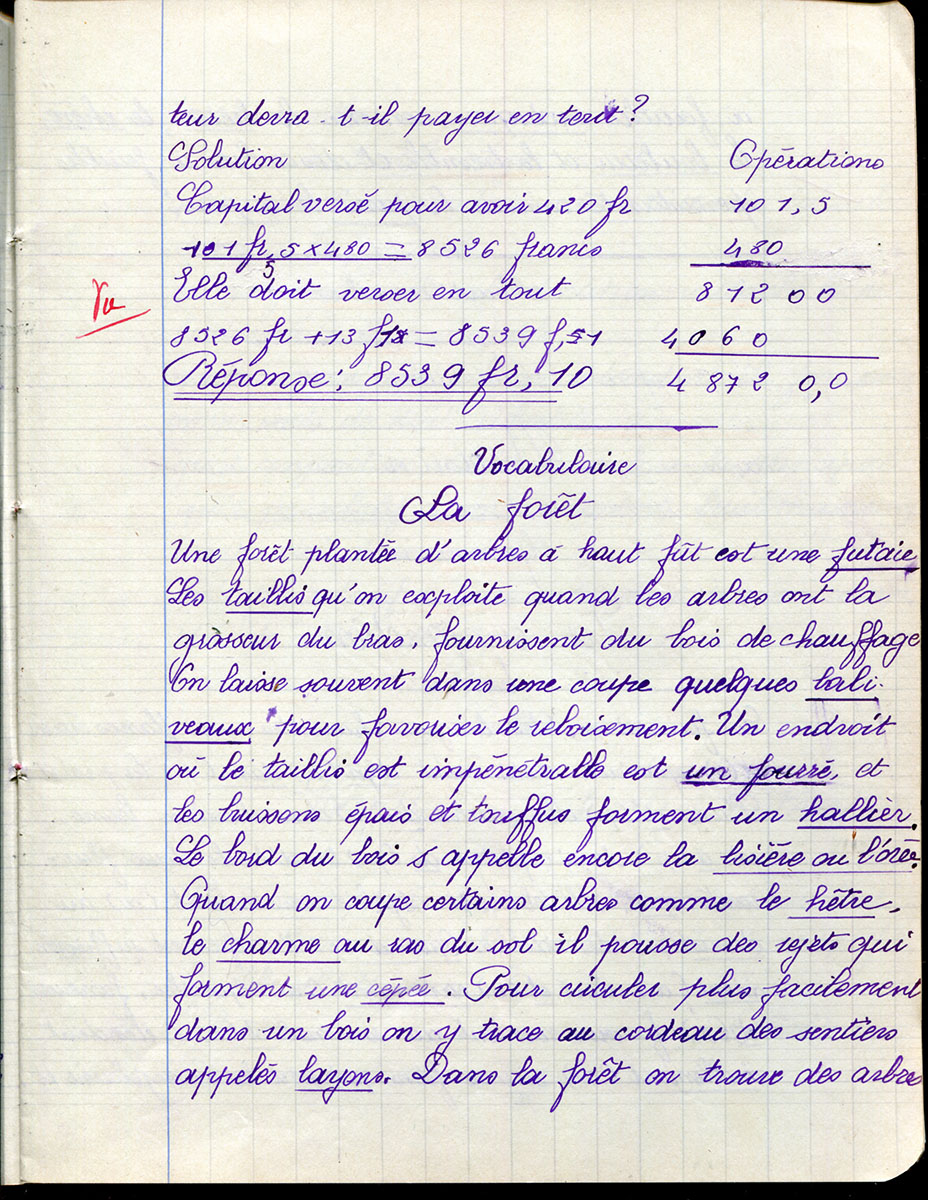 teur devra-t-il payer en tout ?
Solution Opérations
Capital versé pour avoir 420 fr 101,5
101 fr,5 x 480 = 8526 francs 480
5
Elle doit verser en tout 812 00
Vu
8526 fr + 13 f = 8539 f,51 4060
Réponse : 8539 fr, 10 4 872 0,0
Vocabulaire
La forêt
Une forêt plantée d'arbres à haut fût est une futaie
Les taillis qu'on exploite quand les arbres ont la
grosseur du bras, fournissent du bois de chauffage
On laisse souvent dans une coupe quelques bali-
veaux pour favoriser le reboisement. Un endroit
où le taillis est impénétrable est un fourré, et
les buissons épais et touffus forment un hallier.
Le bord du bois s'appelle encore la lisière ou l'orée.
Quand on coupe certains arbres comme le hêtre,
le charme au ras du sol il pousse des rejets qui
forment une cépée. Pour circuler plus facilement
dans un bois on y trace au cordeau des sentiers
appelés layons. Dans la forêt on trouve des arbres